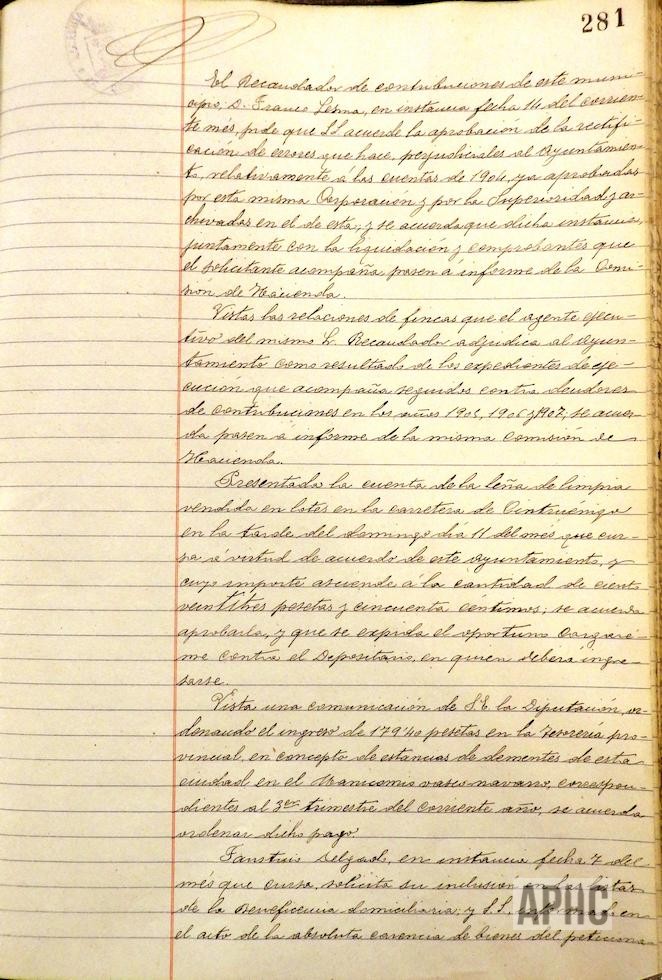 281
El Recaudador de contribuciones de este muni-
cipio, D. Franco Lesma, en instancia fecha 14 del corrien-
te més, pide que S.S. acuerde la aprobación de la rectifi-
cación de errores que hace, perjudiciales al Ayuntamien-
to, relativamente á las cuentas de 1904, ya aprobadas
por esta misma Corporacion y por la Superioridad y ar-
chivadas en el de esta; y se acuerda que dicha instancia,
juntamente con la liquidación y comprobantes que
el solicitante acompaña pasen a informe de la Comi-
sión de Hacienda.
Vistas las relaciones de fincas que el agente ejecu-
tivo del mismo Sr. Recaudador adjudica al Ayun-
tamiento como resultado de los expedientes de eje-
cucion que acompaña seguidos contra deudores
de contribuciones en los años 1905, 1906 y 1907, se acuer-
da pasen a informe de la misma comisión de
Hacienda.
Presentada la cuenta de la leña de limpia
vendida en lotes en la carretera de Cintruénigo
en la tarde del domingo día 11 del més que cur-
sa á virtud de acuerdo de este Ayuntamiento, y
cuyo importe asciende á la cantidad de ciento
veintitres pesetas y cincuenta céntimos; se acuerda
aprobarla, y que se expida el oportuno Cargare-
me contra el Depositario, en quien deberá ingre-
sarse.
Vista una comunicación de S.E. la Diputación, or-
denando el ingreso de 179'40 pesetas en la Tesorería pro-
vincial, en concepto de estancias de dementes de esta
ciudad en el Manicomio vasco navarro, correspon-
dientes al 3er trimestre del corriente año, se acuerda
ordenar dicho pago.
Faustino Delgado, en instancia fecha 7 del
més que cursa, solicita su inclusión en las listas
de la Beneficencia domiciliaria; y S.S. informada en
el acto de la absoluta carencia de bienes del peticiona-
APHC